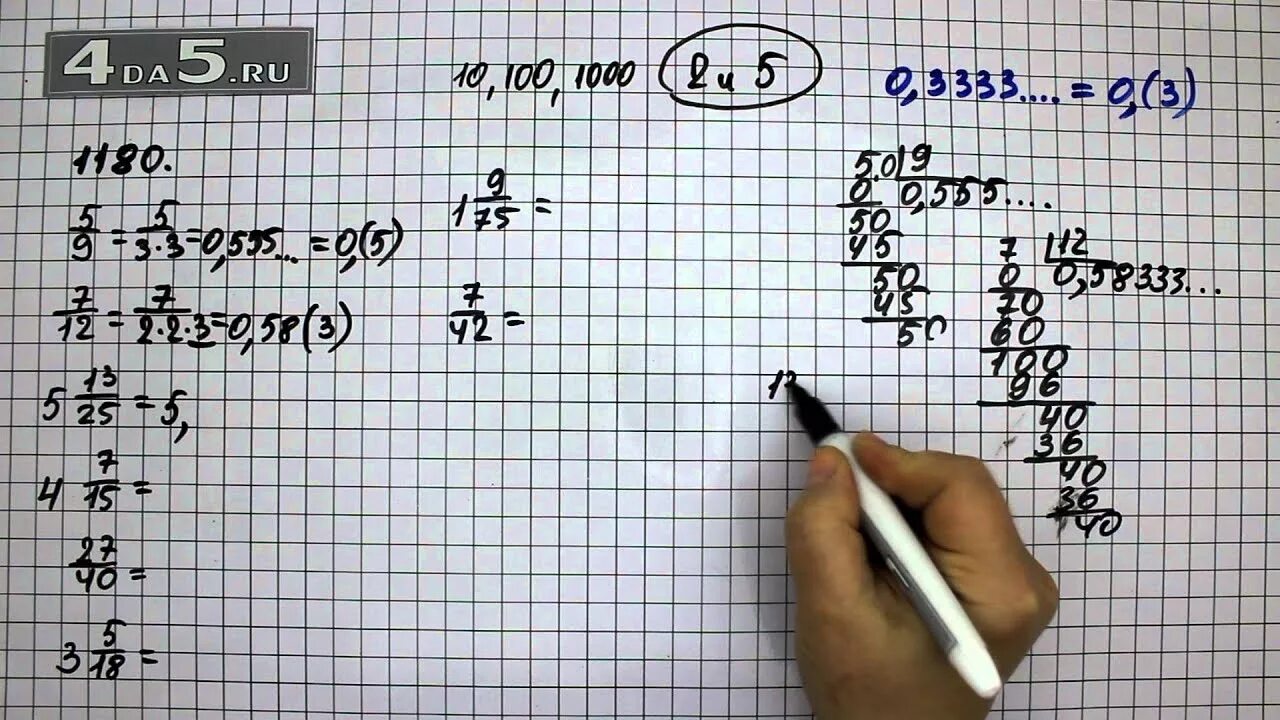 4DA5.RU
10, 100, 1000 2 и 5
0,3333.... = 0,(3)
1180.
5/9 = 5/3·3 = 0,555... = 0,(5)
7/12 = 7/2·2·3 = 0,58(3)
5 13/25 = 5,
4 7/15 =
27/40 =
3 5/18 =
1 9/175 =
7/42 =
5.0 | 9
0 0,555....
50
45
50
45
50
7 | 12
0 0,58333...
70
60
100
96
40
36
40
36
40